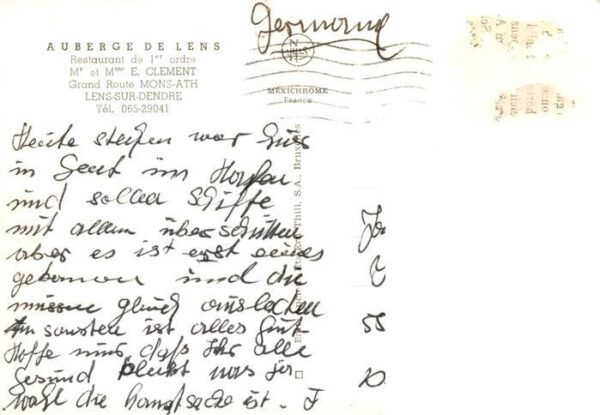 Germany
AUBERGE DE LENS
Restaurant de 1er ordre
Mr et Mme E. CLEMENT
Grand Route MONS-ATH
LENS-SUR-DENDRE
Tél. 065-29041
MEXICHROME
France
S.A., Bruxelles
Heute stehen wir hier
in Gent im Hafen
und sollen Schiffe
mit allem überschütten
aber es ist erst eines
gekommen und die
müssen gleich ausladen
Ansonsten ist alles gut
Hoffe nur, daß Ihr alle
Gesund bleibt was ja
wohl die hauptsache ist.
55